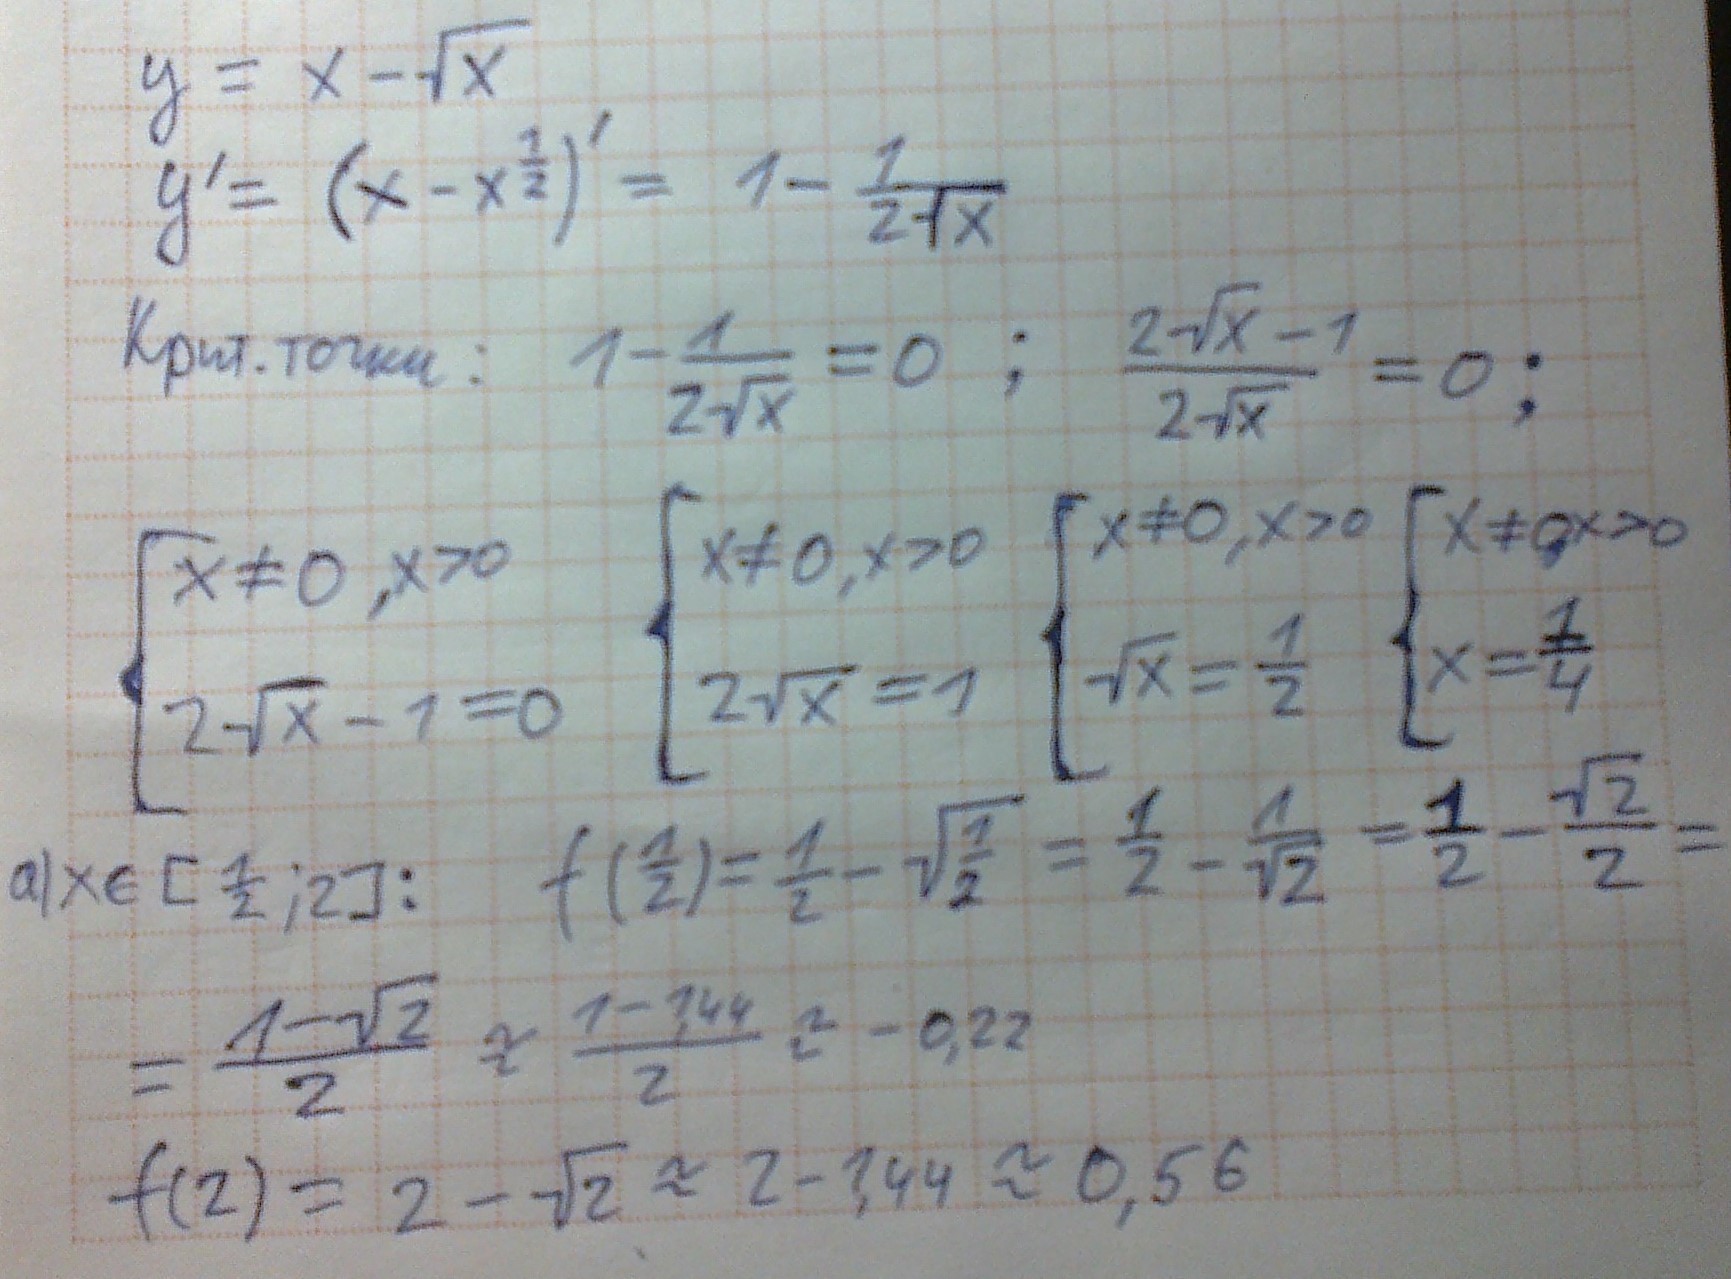 y = x - √x
y' = (x - x^(1/2))' = 1 - 1/(2√x)
Крит. точки: 1 - 1/(2√x) = 0 ; (2√x - 1)/(2√x) = 0 ;
{ x ≠ 0, x > 0 { x ≠ 0, x > 0 { x ≠ 0, x > 0 { x ≠ 0, x > 0
2√x - 1 = 0 2√x = 1 √x = 1/2 x = 1/4
а) x ∈ [1/2 ; 2]: f(1/2) = 1/2 - √(1/2) = 1/2 - 1/√2 = 1/2 - √2/2 =
= (1 - √2)/2 ≈ (1 - 1,44)/2 ≈ -0,22
f(2) = 2 - √2 ≈ 2 - 1,44 ≈ 0,56